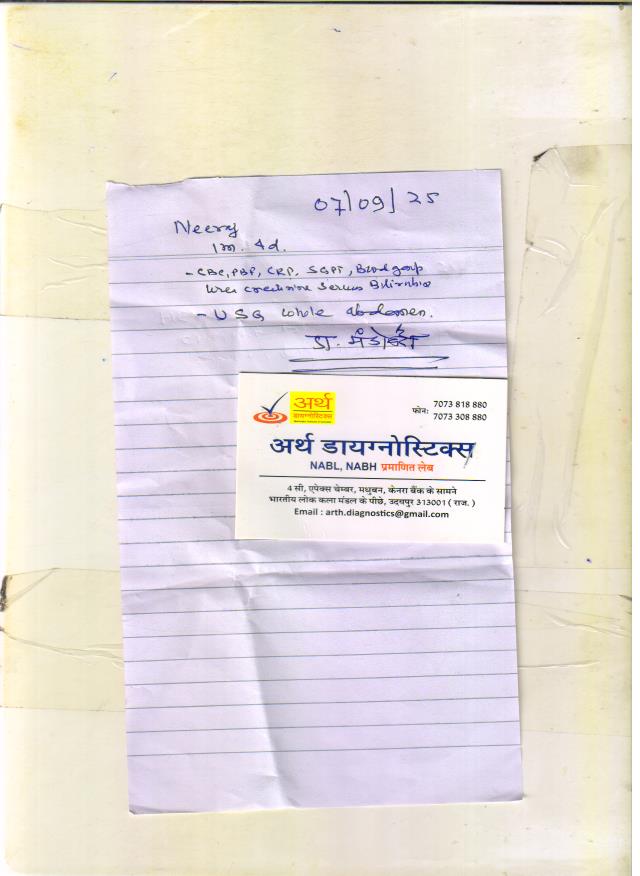 07/09/25
Neeraj
1m. 4d.
- CBC, PBF, CRP, SGPT, Blood group
Urea creatinine Serum Bilirubin
- USG whole abdomen.
डा.
अर्थ
डायग्नोस्टिक्स
फोन: 7073 818 880
7073 308 880
अर्थ डायग्नोस्टिक्स
NABL, NABH प्रमाणित लेब
4 सी, एपेक्स चेम्बर, मधुबन, केनरा बैंक के सामने
भारतीय लोक कला मंडल के पीछे, उदयपुर 313001 ( राज. )
Email : arth.diagnostics@gmail.com